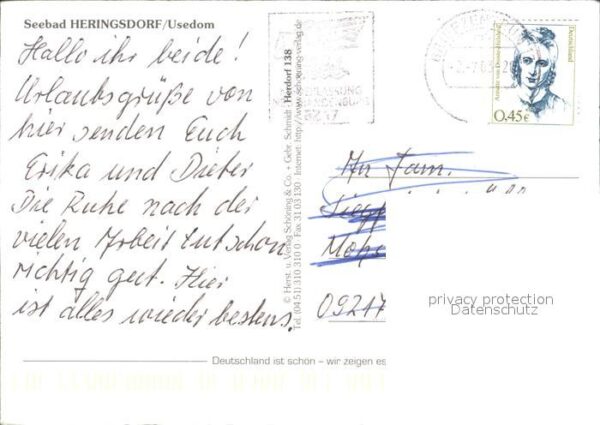 Seebad HERINGSDORF/Usedom
Hallo ihr beide!
Urlaubsgrüße von
hier senden Euch
Erika und Dieter
Die Ruhe nach der
vielen Arbeit tut schon
richtig gut. Hier
ist alles wieder bestens.
© Herst. u. Verlag Schöning & Co. + Gebr. Schmidt · Herdorf 138
Tel. (04 51) 310 310 0 · Fax 31 03 130 · Internet: http://www.schoening-verlag.de
Deutschland
Annette von Droste-Hülshoff
0,45€
An Fam.
09217
privacy protection
Datenschutz
Deutschland ist schön – wir zeigen es